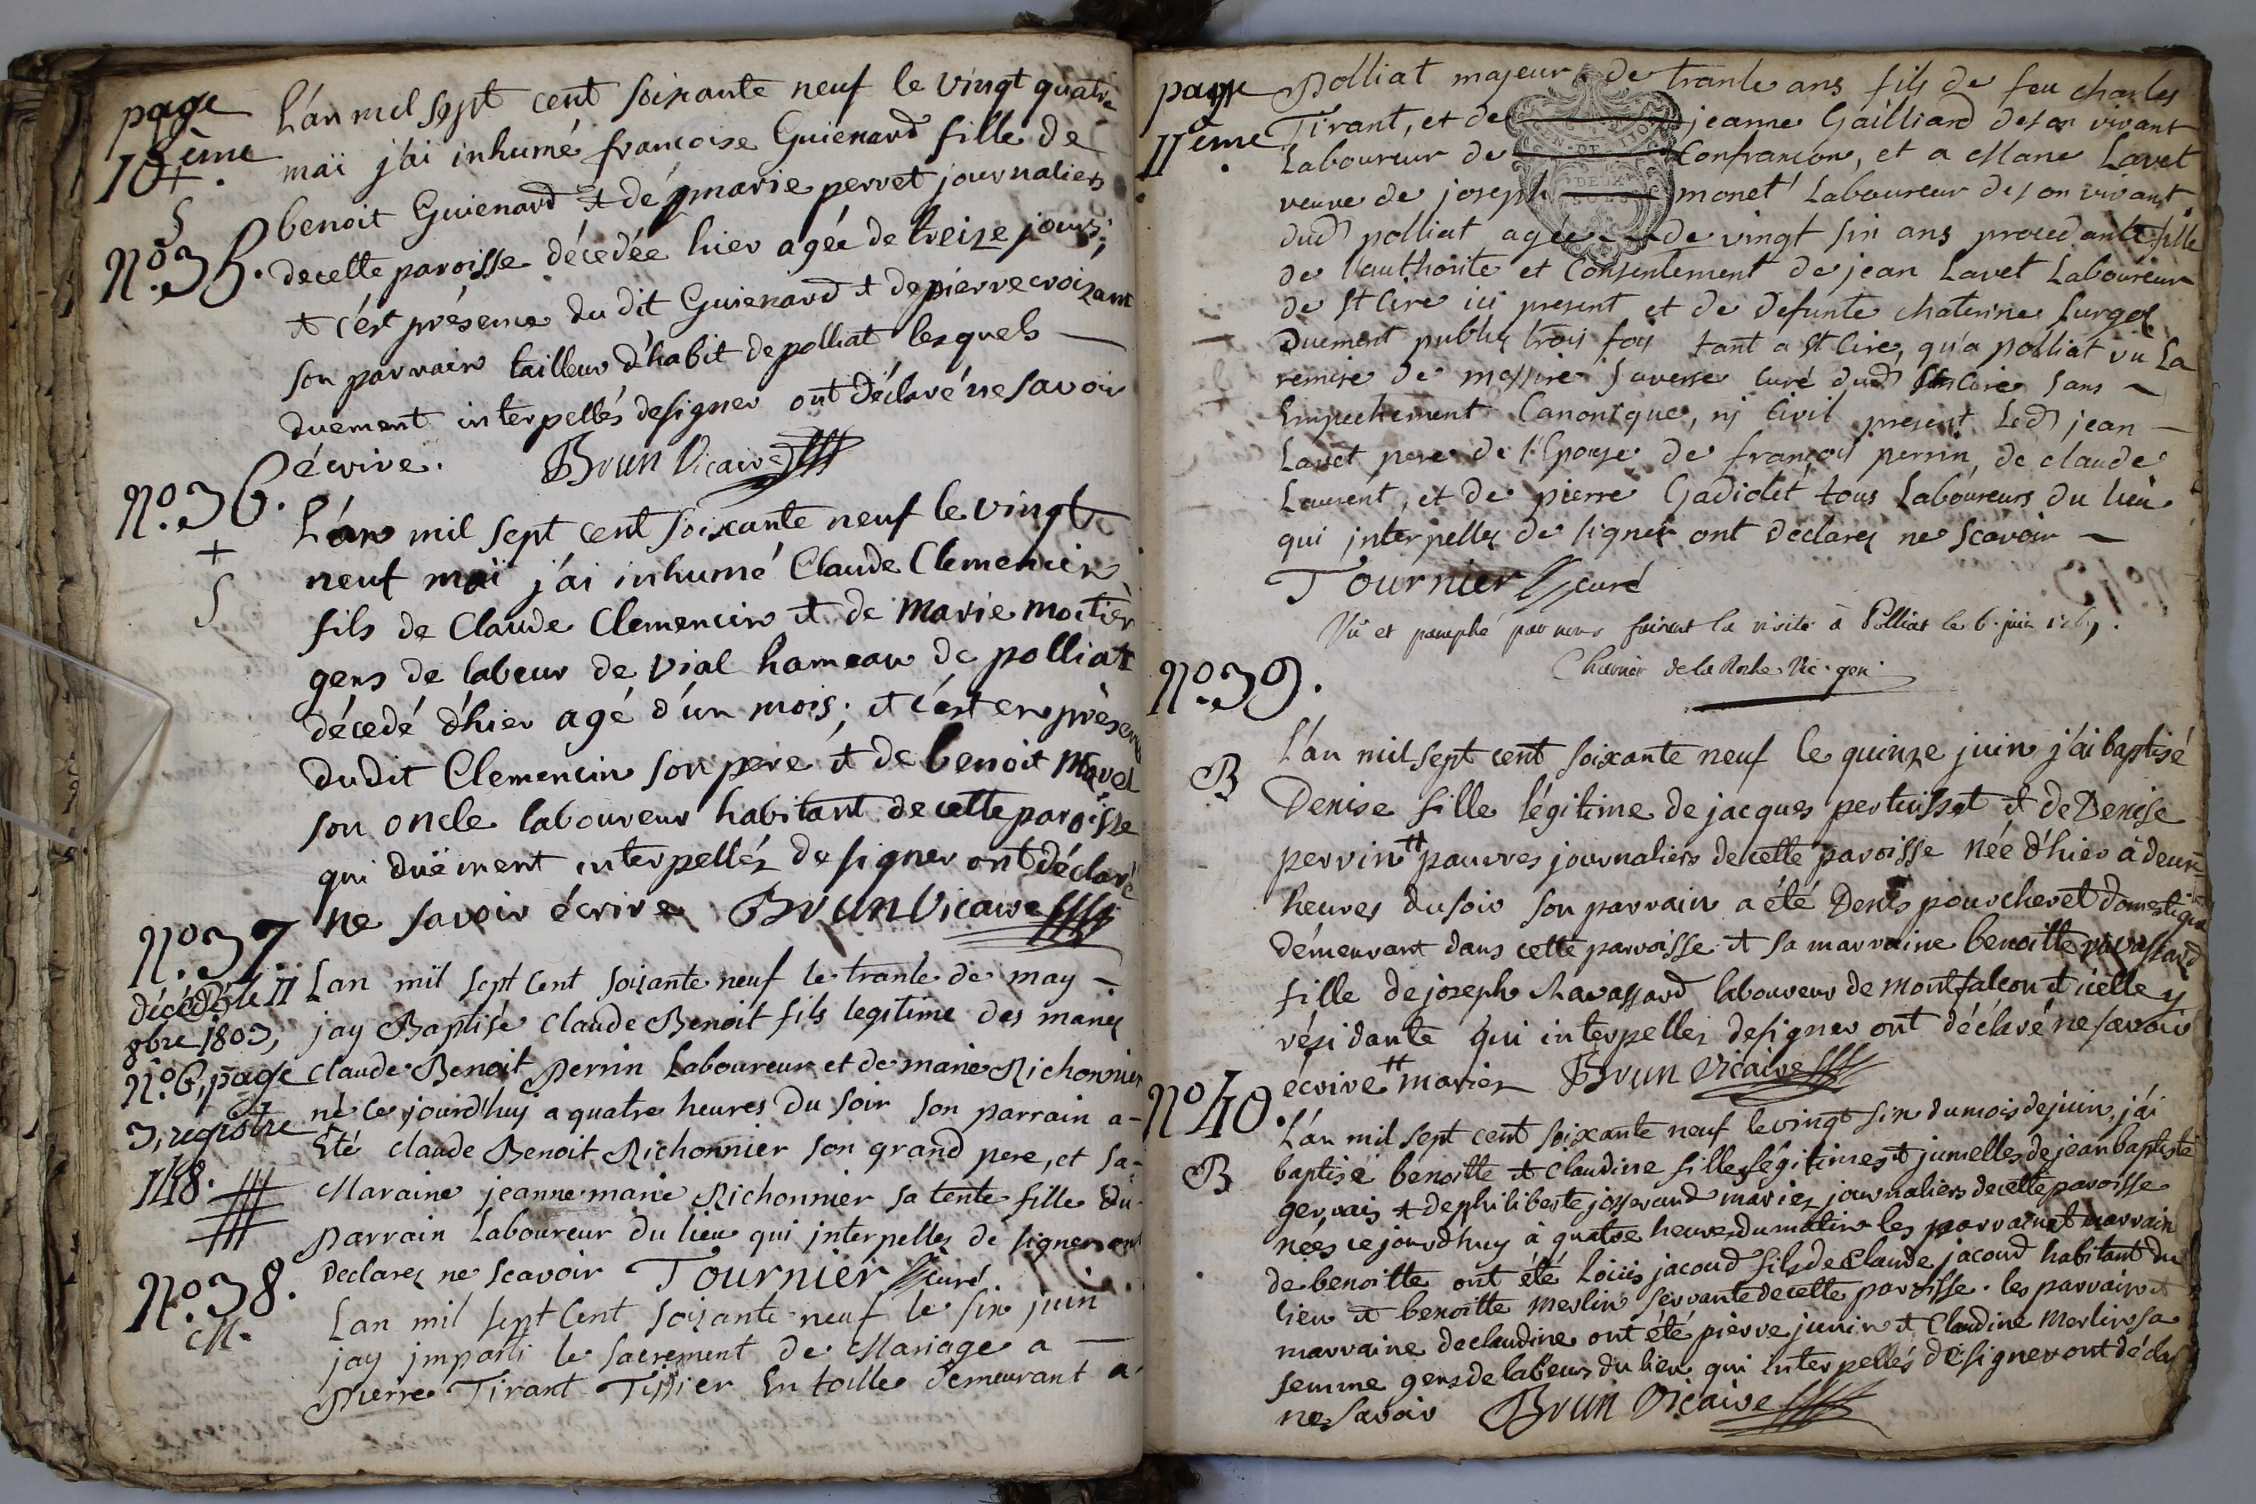 page
10ème
L'an mil sept cent soixante neuf le vingt quatre
maï j'ai inhumé francoise Guienard fille de
S
benoit Guienard & de marie perret journaliers
No. 35.
de cette paroisse décedée hier agée de treize jours;
& c'est présence du dit Guienard & de pierre croizant
son parrain tailleur d'habit de polliat lesquels —
duement interpellés de signer ont déclaré ne savoir
écrire. Brun Vicaire
No. 36.
+
S
L'an mil sept cent soixante neuf le vingt
neuf maï j'ai inhumé Claude Clemencin
fils de Claude Clemencin & de marie moitier
gens de labeur de vial hameau de polliat
décedé d'hier agé d'un mois; & c'est en présence
dudit Clemencin son pere & de benoit
son oncle laboureur habitant de cette paroisse
qui duëment interpellés de signer ont déclaré
ne savoir écrire Brun Vicaire
No. 37.
décédé le 11
9bre 1803,
No. 6, page
3, registre
148.
Lan mil sept cent soixante neuf le trante de may —
jay Baptisé claude Benoit fils legitime des mariez
claude Benoit Perrin Laboureur et de marie Richonnier
né ce jourd'huy a quatre heures du soir son parrain a —
Eté claude Benoit Richonnier son grand pere, et sa —
Maraine jeanne marie Richonnier sa tente fille du
parrain Laboureur du lieu qui interpellez de signer ont
declarez ne scavoir Tournier curé.
No. 38.
M.
Lan mil sept cent soixante neuf le six juin
jay imparti le sacrement de Mariage a —
Pierre Tirant Tissier En toille demeurant a
page
11ème.
Polliat majeur de trante ans fils de feu charles
Tirant, et de jeanne Gailliard de son vivant
Laboureur de Confrancon, et a Marie Lavet
veuve de joseph monet Laboureur de son vivant
dud polliat agée de vingt six ans procedante fille
de l'authorite et Consentement de jean Lavet Laboureur
de St Cire ici present et de defunte chaterine
Duement publiez trois fois tant a St Cire, qu'a polliat vu La
remise de messire curé dud St Cire sans —
Empechement Canonique, nj Civil present Led jean —
Lavet pere de l'Epouse de françois perrin, de claude
Laurent, et de pierre Gadiolet tous Laboureurs du lieu
qui interpellez de signer ont declarez ne scavoir —
Tournier curé
Vu et paraphé par nous faisant la visite à Polliat le 6. juin 1769.
de la Roche Vic. gen.
No. 39.
B
L'an mil sept cent soixante neuf le quinze juin j'ai baptisé
Denise fille légitime de jacques pertuisset & de Denise
perrin ++ pauvres journaliers de cette paroisse née d'hier à deux
heures du soir son parrain a été Denis pourchevet domestique
démeurant dans cette parroisse & sa marraine benoitte ravassard
fille de joseph Ravassard laboureur de montfalcon & icelle y
résidante qui interpellez de signer ont déclaré ne savoir
écrire ++ mariez Brun Vicaire
No. 40.
B
L'an mil sept cent soixante neuf le vingt six du mois de juin j'ai
baptisé benoitte & Claudine filles légitimes & jumelles de jean baptiste
gervais & de philiberte josserand mariez journaliers de cette paroisse
nées ce jourd'huy à quatre heures du matin les parrain & marrain
de benoitte ont été Loüis jacoud fils de Claude jacoud habitant du
lieu & benoitte Merlin servante de cette paroisse. les parrain &
marraine de claudine ont été pierre junin & Claudine Merlin sa
femme gens de labeur du lieu qui interpellés de signer ont déclaré
ne savoir Brun Vicaire